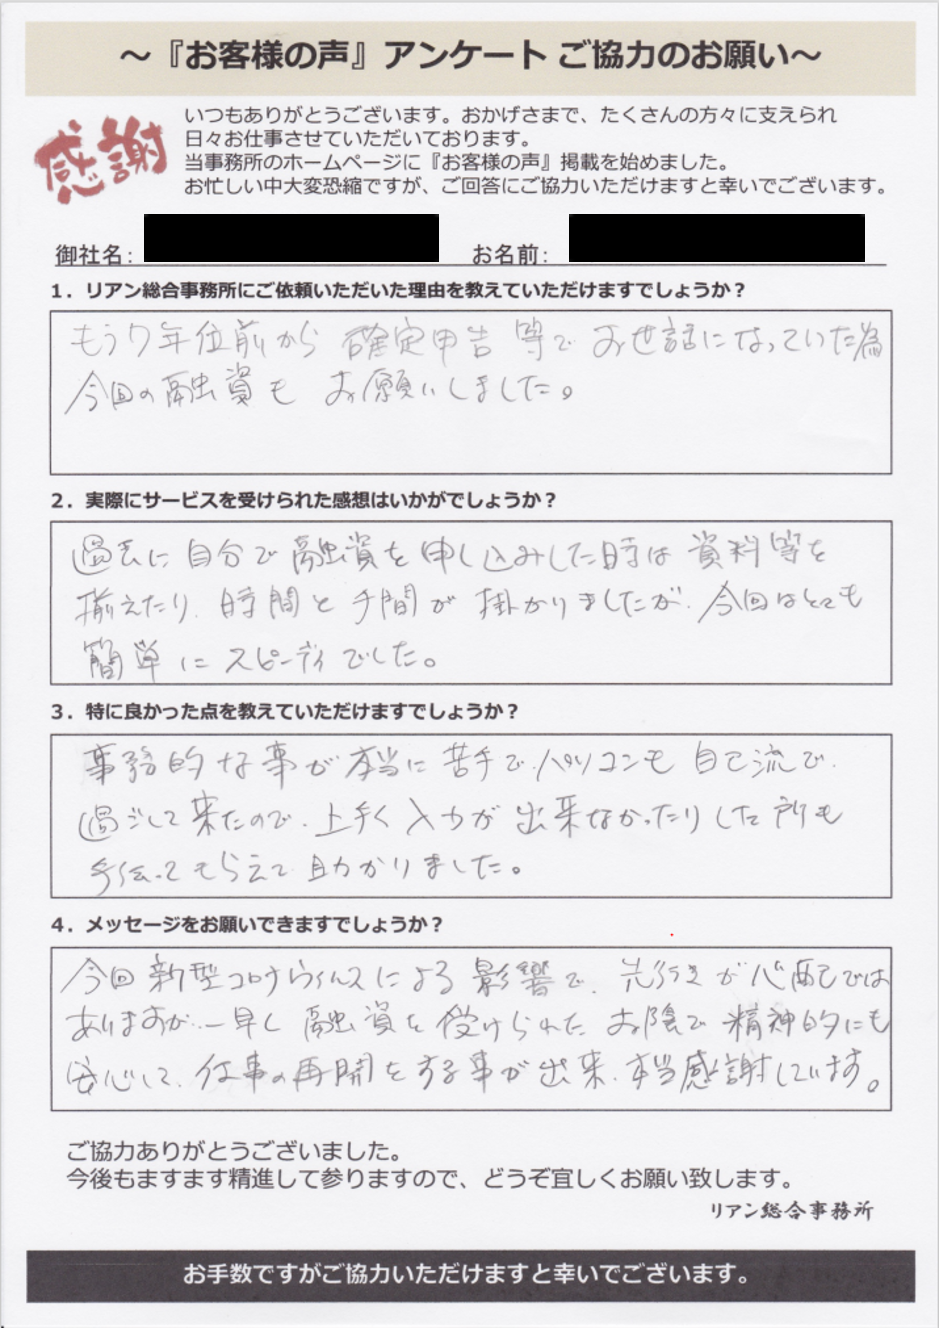 ～『お客様の声』アンケート ご協力のお願い～
感謝
いつもありがとうございます。おかげさまで、たくさんの方々に支えられ
日々お仕事させていただいております。
当事務所のホームページに『お客様の声』掲載を始めました。
お忙しい中大変恐縮ですが、ご回答にご協力いただけますと幸いでございます。
御社名： お名前：
1．リアン総合事務所にご依頼いただいた理由を教えていただけますでしょうか？
もう7年位前から 確定申告 等で お世話になっていた為
今回の融資も お願いしました。
2．実際にサービスを受けられた感想はいかがでしょうか？
過去に自分で融資を申し込みした時は 資料等を
揃えたり、時間と手間が 掛かりましたが、今回はとても
簡単に スピーディでした。
3．特に良かった点を教えていただけますでしょうか？
事務的な事が本当に 苦手で、パソコンも 自己流で、
過ごして来たので、上手く入力が 出来なかったりした所も
手伝ってもらえて 助かりました。
4．メッセージをお願いできますでしょうか？
今回 新型コロナウィルスによる 影響で、先行きが心配では
ありますが、一早く 融資を受けられた お陰で 精神的にも
安心して、仕事の再開をする事が出来、本当感謝しています。
ご協力ありがとうございました。
今後もますます精進して参りますので、どうぞ宜しくお願い致します。
リアン総合事務所
お手数ですがご協力いただけますと幸いでございます。